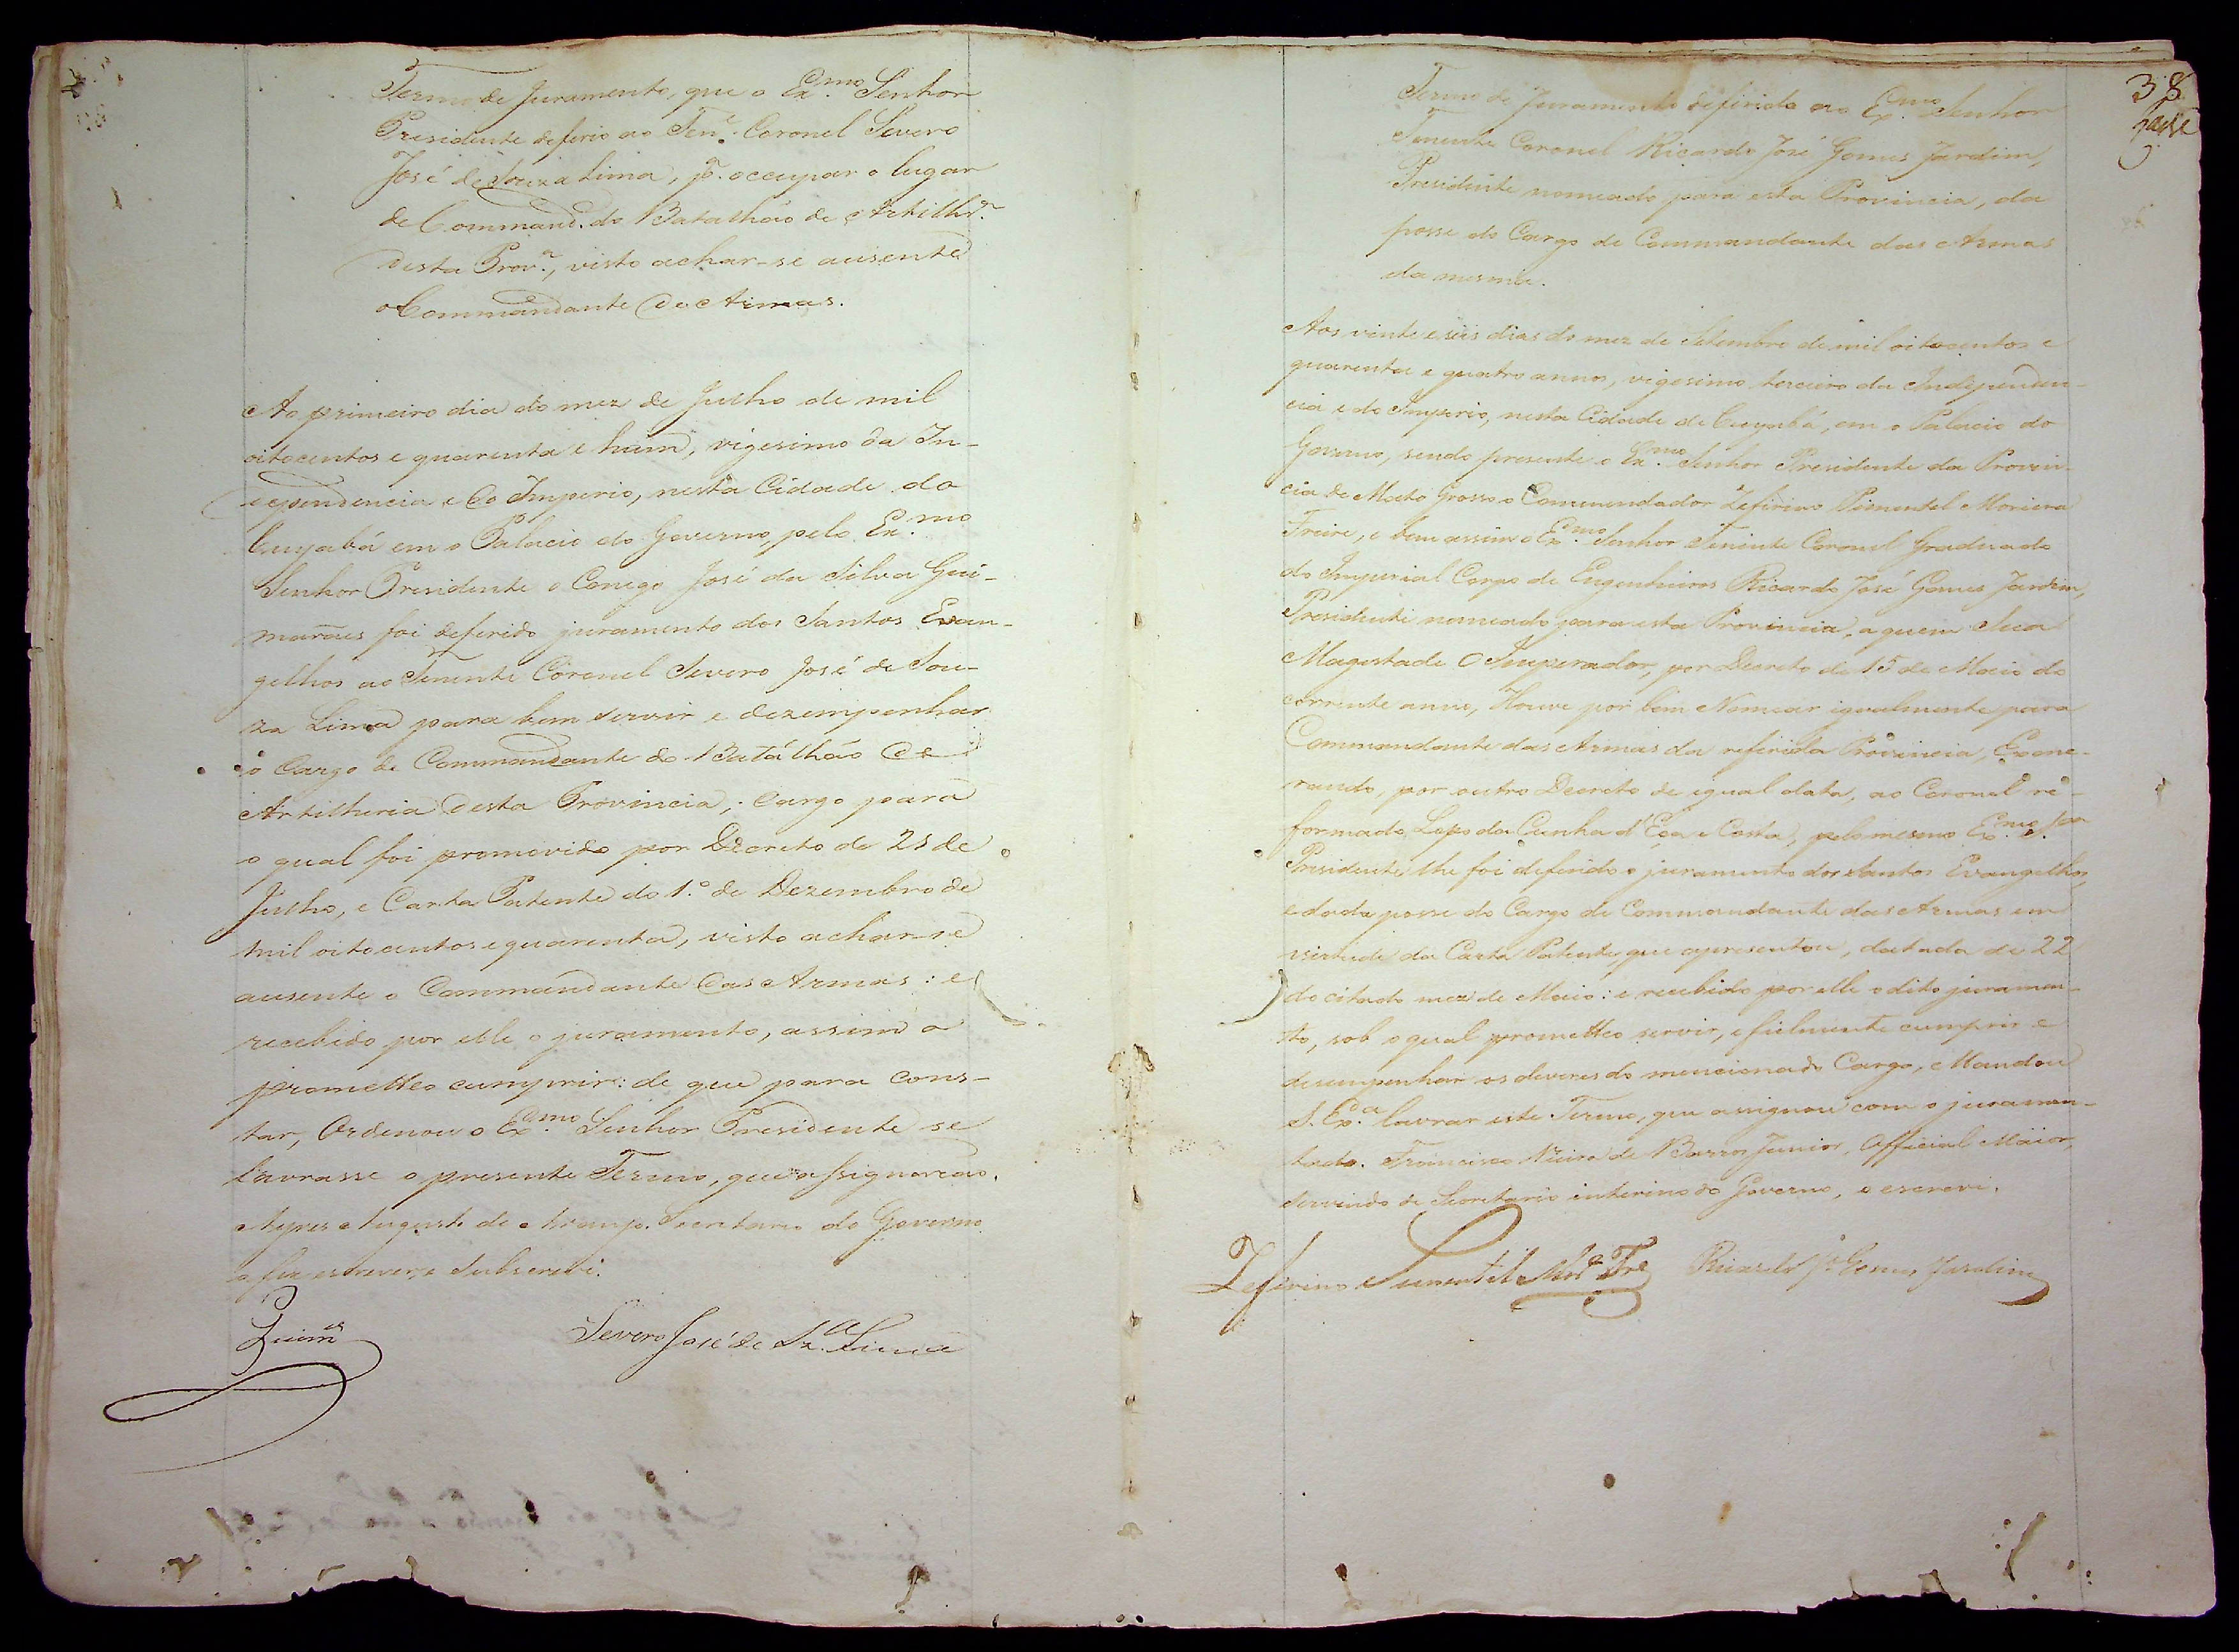 Termo de Juramento, que o Ex.mo Senhor
Presidente deferio ao Ten.e Coronel Severo
José de Souza Lima, p.a occupar o lugar
de Command.e do Batalhão de Artilhr.a
desta Prov.a, visto achar-se ausente
o Commandante de Armas.
Ao primeiro dia do mez de Julho de mil
oitocentos e quarenta e hum, vigesimo da In-
dependencia e do Imperio, nesta Cidade do
Cuyabá em o Palacio do Governo, pelo Ex.mo
Senhor Presidente o Conego José da Silva Gui-
marães foi deferido juramento dos Santos Evan-
gelhos ao Tenente Coronel Severo José de Sou-
za Lima para bem servir e dezempenhar
o Cargo de Commandante do Batalhão de
Artilheria desta Provincia, cargo para
o qual foi promovido por Decreto de 21 de
Julho, e Carta Patente do 1.º de Dezembro de
mil oitocentos e quarenta, visto achar-se
ausente o Commandante das Armas: e
recebido por elle o juramento, assim o
prometteo cumprir: de que para cons-
tar, Ordenou o Ex.mo Senhor Presidente se
lavrasse o presente Termo, que assignarão.
Ayres Augusto de Araujo. Secretario do Governo
o fiz escrever, e subscrevi.
Guim.es
Severo José de Sz.a Lima
38
Termo de Juramento deferido ao Ex.mo Senhor
Tenente Coronel Ricardo José Gomes Jardim,
Presidente nomeado para esta Provincia, da
posse do Cargo de Commandante das Armas
da mesma.
Aos vinte e seis dias do mez de Setembro de mil oitocentos e
quarenta e quatro annos, vigesimo terceiro da Independen-
cia e do Imperio, nesta Cidade de Cuyabá, em o Palacio do
Governo, sendo presente o Ex.mo Senhor Presidente da Provin-
cia de Mato Grosso o Commendador Zeferino Pimentel Moreira
Freire, e bem assim o Ex.mo Senhor Tenente Coronel Graduado
do Imperial Corpo de Engenheiros Ricardo José Gomes Jardim,
Presidente nomeado para esta Provincia, a quem Sua
Magestade O Imperador, por Decreto de 15 de Maio do
corrente anno, Houve por bem Nomear igualmente para
Commandante das Armas da referida Provincia, Exone-
rando, por outro Decreto de igual data, ao Coronel re-
formado Lopo da Cunha d'Eça e Costa, pelo mesmo Ex.mo Snr.
Presidente lhe foi deferido o juramento dos Santos Evangelhos,
e dada posse do Cargo de Commandante das Armas em
virtude da Carta Patente, que apresentou, datada de 22
do citado mez de Maio: e recebido por elle o dito juramen-
to, sob o qual prometteo servir, e fielmente cumprir e
desempenhar os deveres do mencionado Cargo, Mandou
S. Ex.a lavrar este Termo, que assignou com o juramen-
tado. Francisco de Barros Junior, Official Maior,
servindo de Secretario interino do Governo, o escrevi.
Zeferino Pimentel Mor.a Fre
Ricardo Jé Gomes Jardim